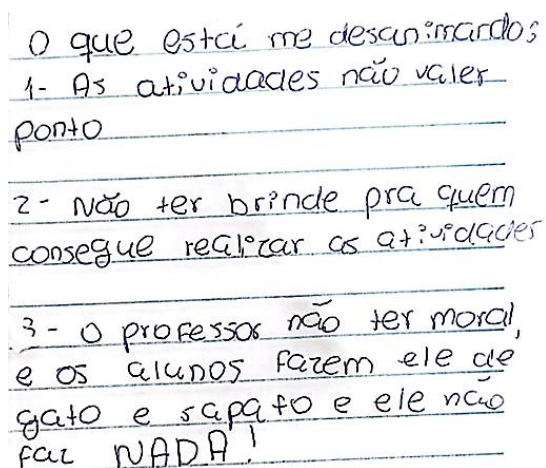 O que está me desanimando:
1- As atividades não valer
ponto
2- Não ter brinde pra quem
consegue realizar as atividades
3- O professor não ter moral,
e os alunos fazem ele de
gato e sapato e ele não
faz NADA!